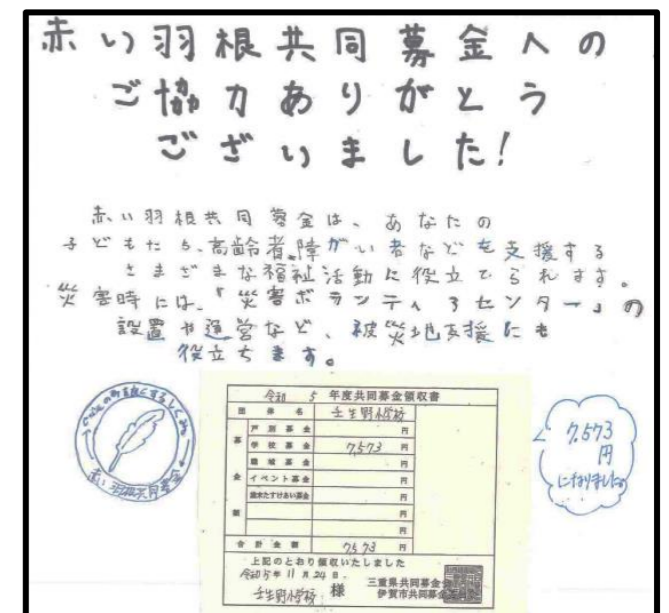 赤い羽根共同募金への
ご協力ありがとう
ございました!
赤い羽根共同募金は、あなたの
子どもたち、高齢者、障がい者などを支援する
さまざまな福祉活動に役立てられます。
災害時には、「災害ボランティアセンター」の
設置や運営など、被災地支援にも
役立ちます。
赤い羽根共同募金
令和 5 年度共同募金領収書
団体名 壬生野小学校
募金額
戸別募金 円
学校募金 7,573 円
職域募金 円
イベント募金 円
歳末たすけあい募金 円
円
円
合計金額 7,573 円
上記のとおり領収いたしました
令和5年11月24日
壬生野小学校 様
三重県共同募金会
伊賀市共同募金委員会
7,573
円
になりました